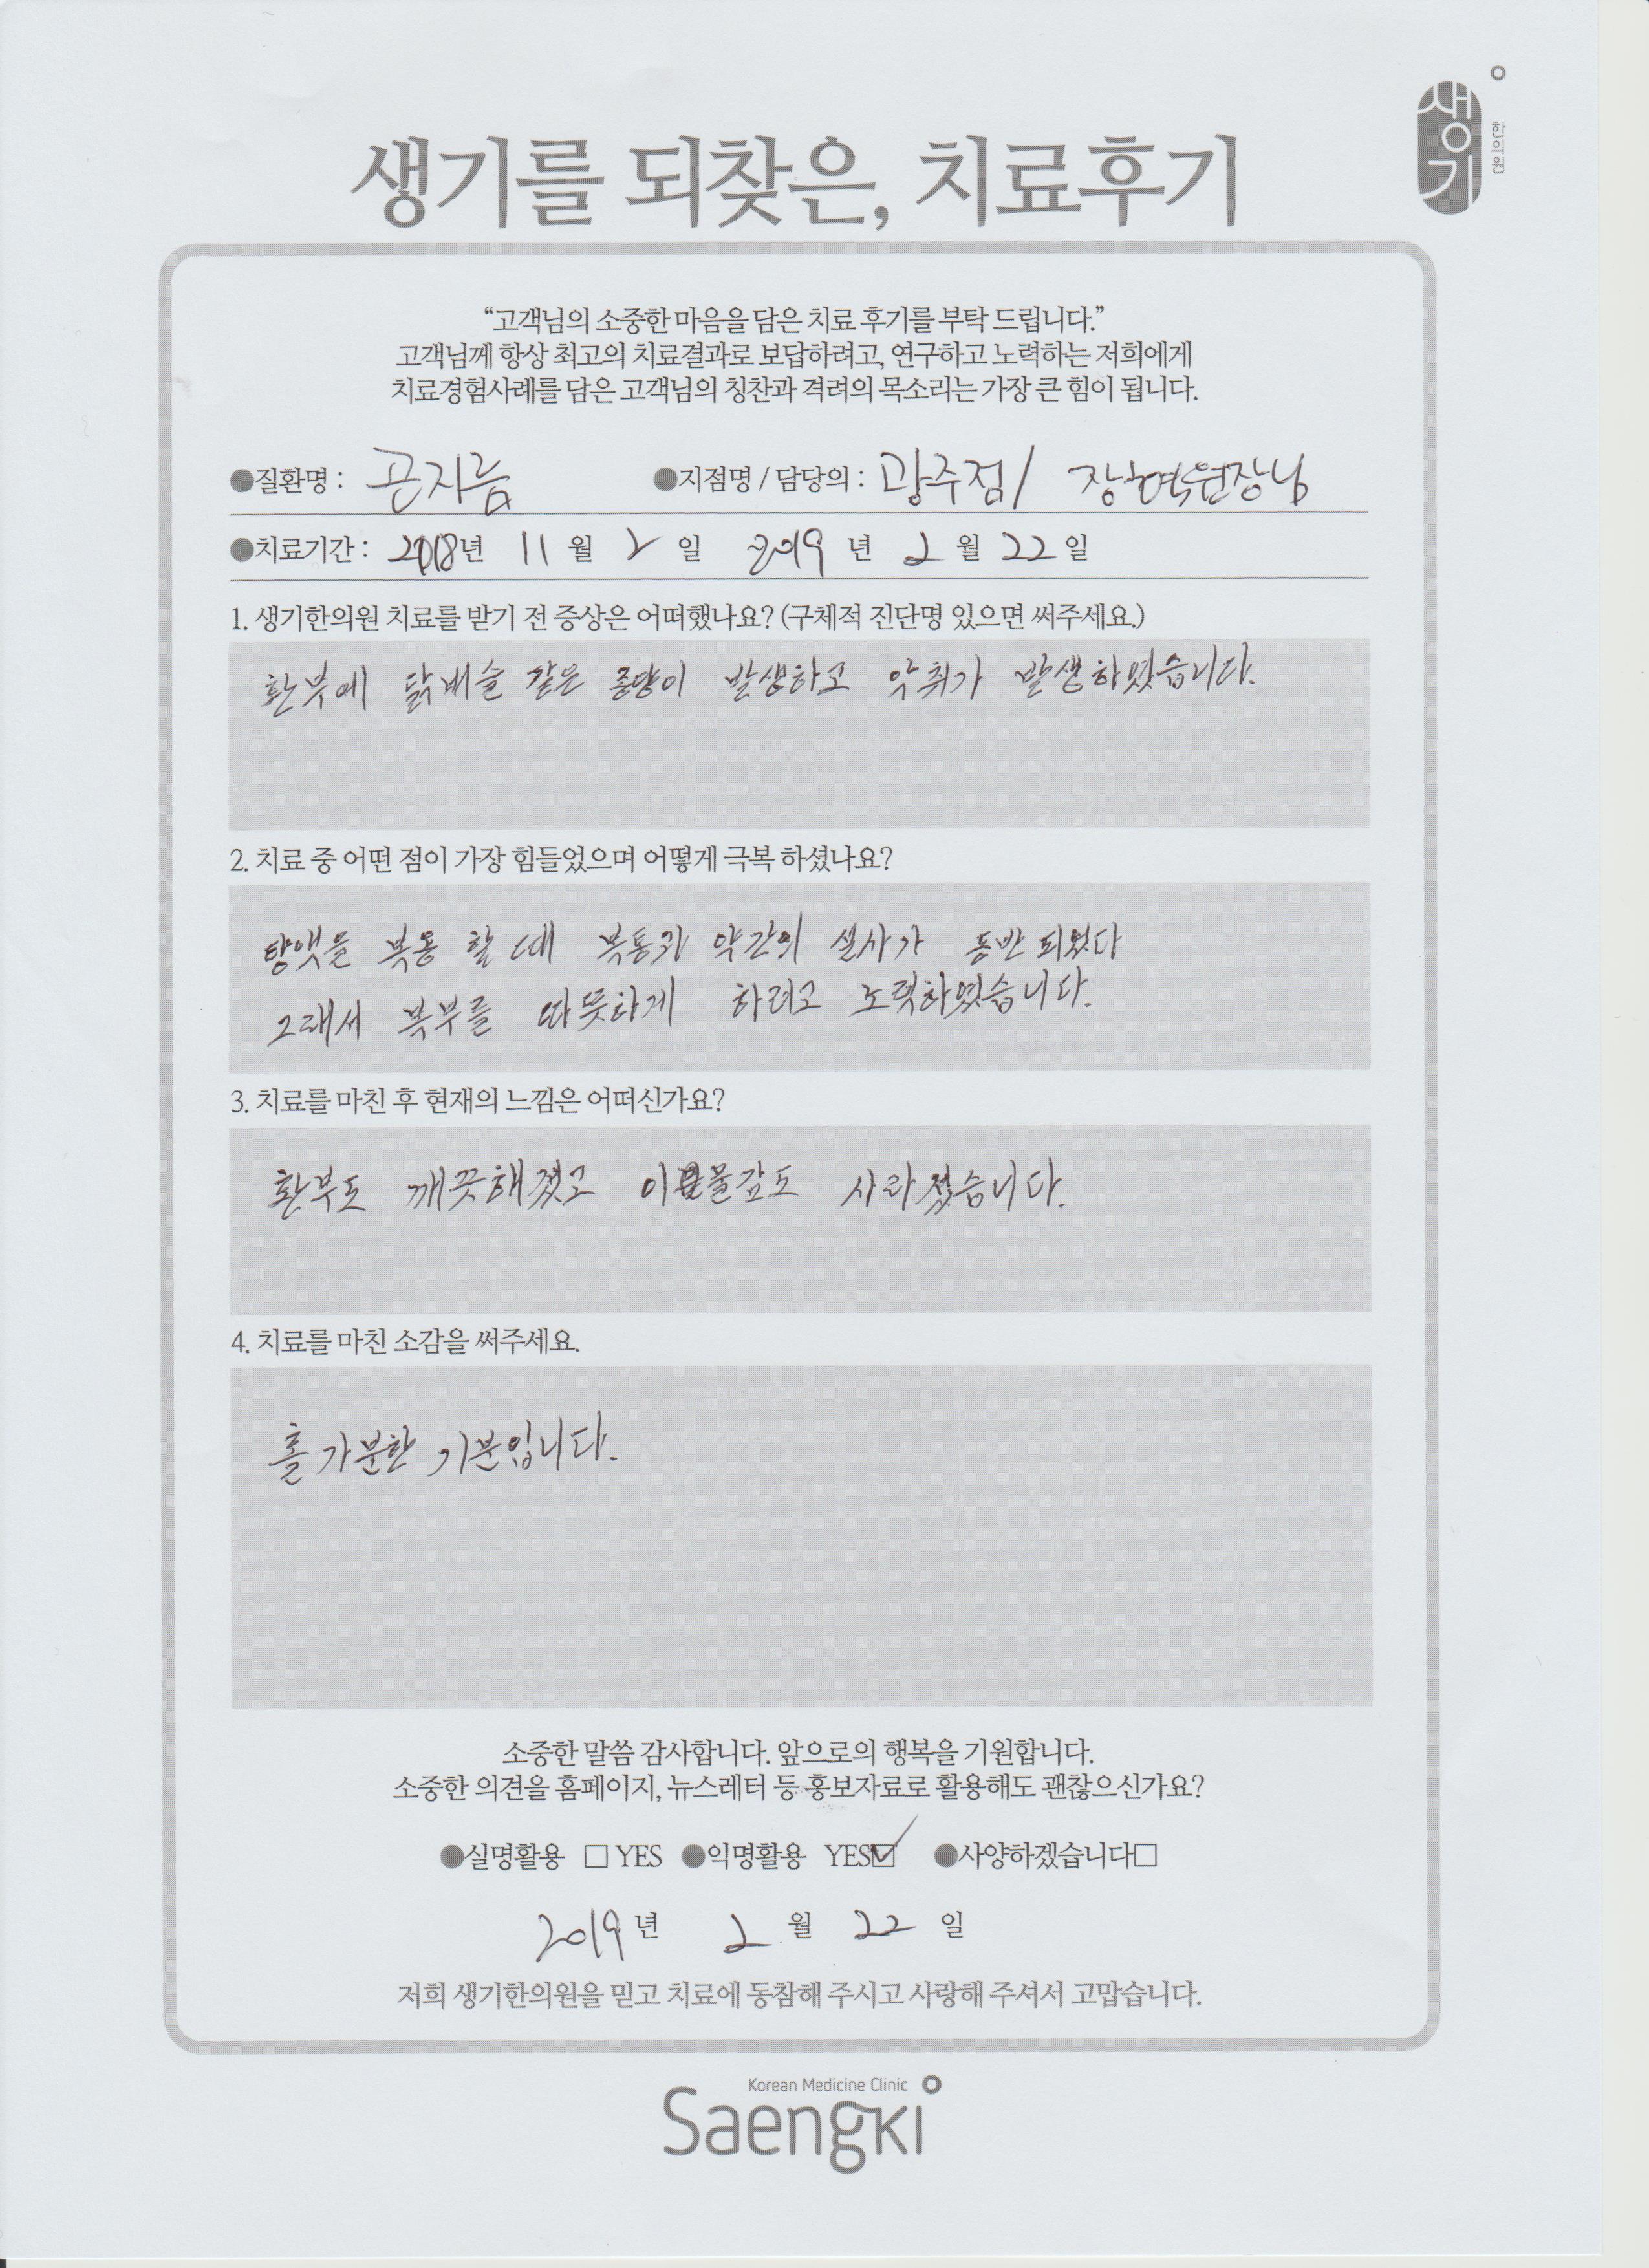 생기
한의원
생기를 되찾은, 치료후기
“고객님의 소중한 마음을 담은 치료 후기를 부탁 드립니다.”
고객님께 항상 최고의 치료결과로 보답하려고, 연구하고 노력하는 저희에게
치료경험사례를 담은 고객님의 칭찬과 격려의 목소리는 가장 큰 힘이 됩니다.
●질환명 : 곤지름 ●지점명 / 담당의 : 광주점 / 장혁원장님
●치료기간 : 2018년 11 월 2 일 2019 년 2 월 22 일
1. 생기한의원 치료를 받기 전 증상은 어떠했나요? (구체적 진단명 있으면 써주세요.)
환부에 닭벼슬 같은 종양이 발생하고 악취가 발생하였습니다.
2. 치료 중 어떤 점이 가장 힘들었으며 어떻게 극복 하셨나요?
복용 할 때 복통과 약간의 설사가 동반 되었다
그래서 복부를 따뜻하게 하려고 노력하였습니다.
3. 치료를 마친 후 현재의 느낌은 어떠신가요?
환부도 깨끗해졌고 이물감도 사라졌습니다.
4. 치료를 마친 소감을 써주세요.
홀가분한 기분입니다.
소중한 말씀 감사합니다. 앞으로의 행복을 기원합니다.
소중한 의견을 홈페이지, 뉴스레터 등 홍보자료로 활용해도 괜찮으신가요?
●실명활용 □ YES ●익명활용 YES☑ ●사양하겠습니다□
2019 년 2 월 22 일
저희 생기한의원을 믿고 치료에 동참해 주시고 사랑해 주셔서 고맙습니다.
Korean Medicine Clinic
Saengki